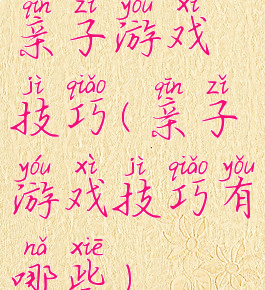 qīn zǐ yóu xì
亲子游戏
jì qiǎo qīn zǐ
技巧(亲子
yóu xì jì qiǎo yǒu
游戏技巧有
nǎ xiē
哪些)